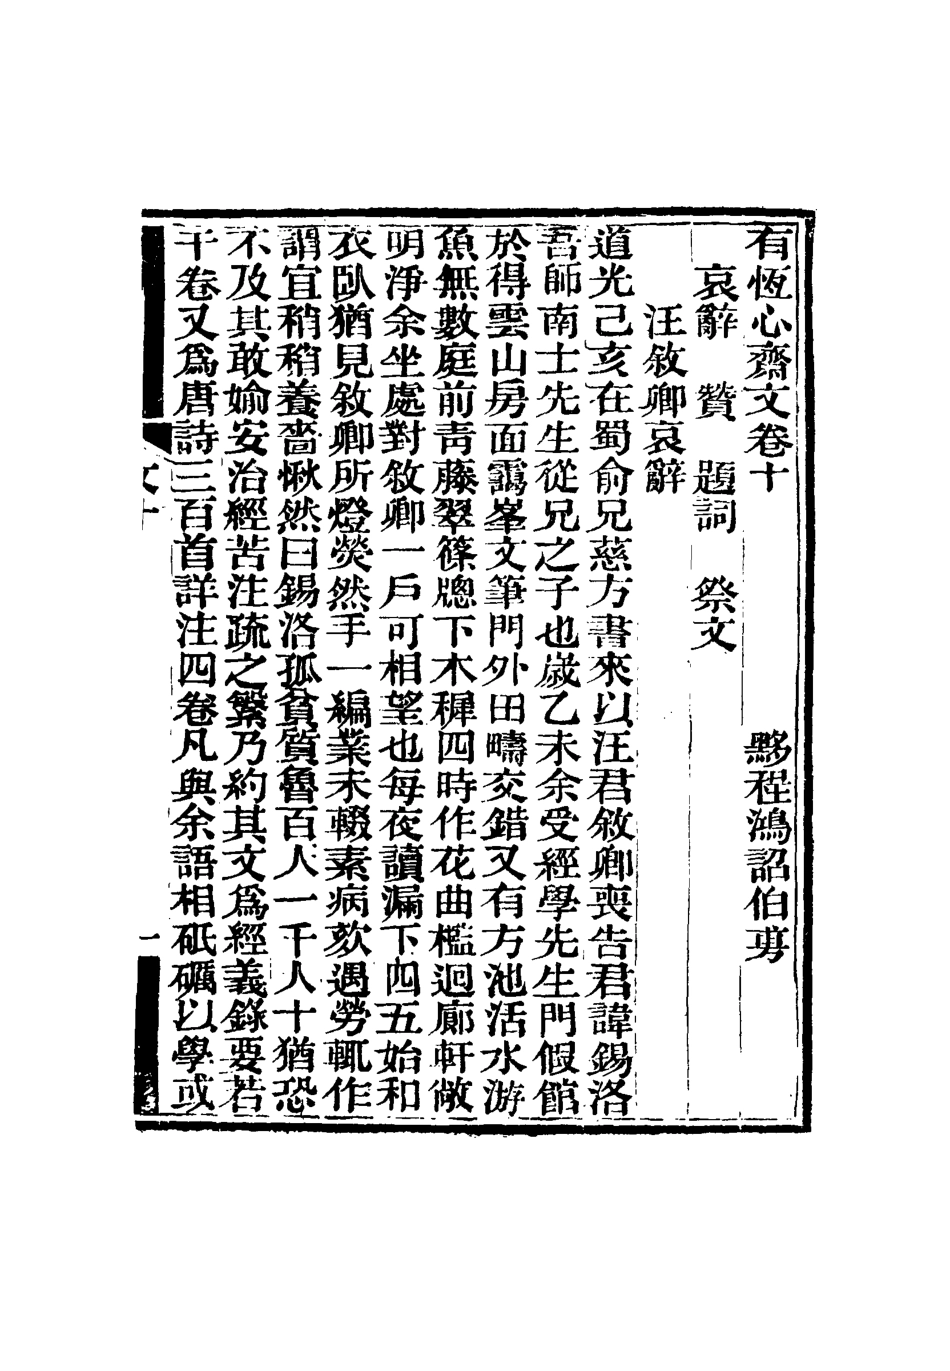 有恆心齋文卷十　黟程鴻詔伯旉
哀辭　贊　題詞　祭文
汪敘卿哀辭
道光己亥在蜀俞兄慈方書來以汪君敘卿喪告君諱錫洛
吾師南士先生從兄之子也歲乙未余受經學先生門假館
於得雲山房面靄峯文筆門外田疇交錯又有方池活水游
魚無數庭前靑藤翠篠牕下木穉四時作花曲檻迴廊軒敞
明淨余坐處對敘卿一戶可相望也每夜讀漏下四五始和
衣臥猶見敘卿所燈熒然手一編業未輟素病欬遇勞輒作
謂宜稍稍養嗇愀然曰錫洛孤貧質魯百人一千人十猶恐
不及其敢媮安治經苦注疏之繁乃約其文爲經義錄要若
干卷又爲唐詩三百首詳注四卷凡與余語相砥礪以學或
文十
一